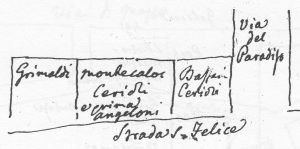 Grimaldi
montecalos
Cerioli
e prima
angeloni
Basseri
Cerioli
Via
del
Paradiso
Strada S. Felice